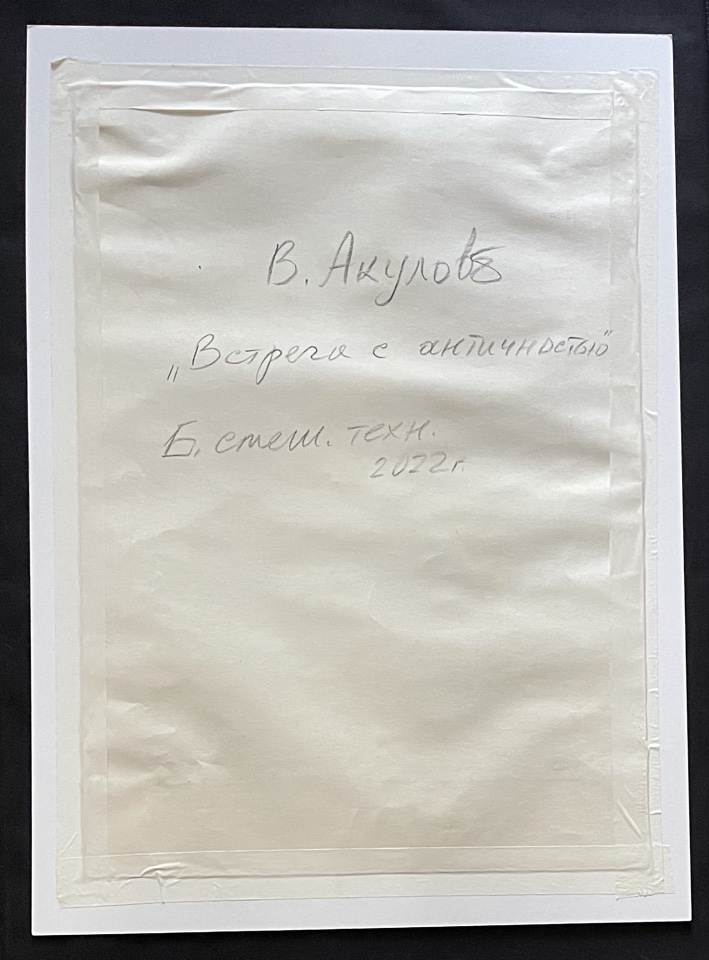 В. Акуловъ
„Встреча с античностью"
Б. смеш. техн.
2022г.